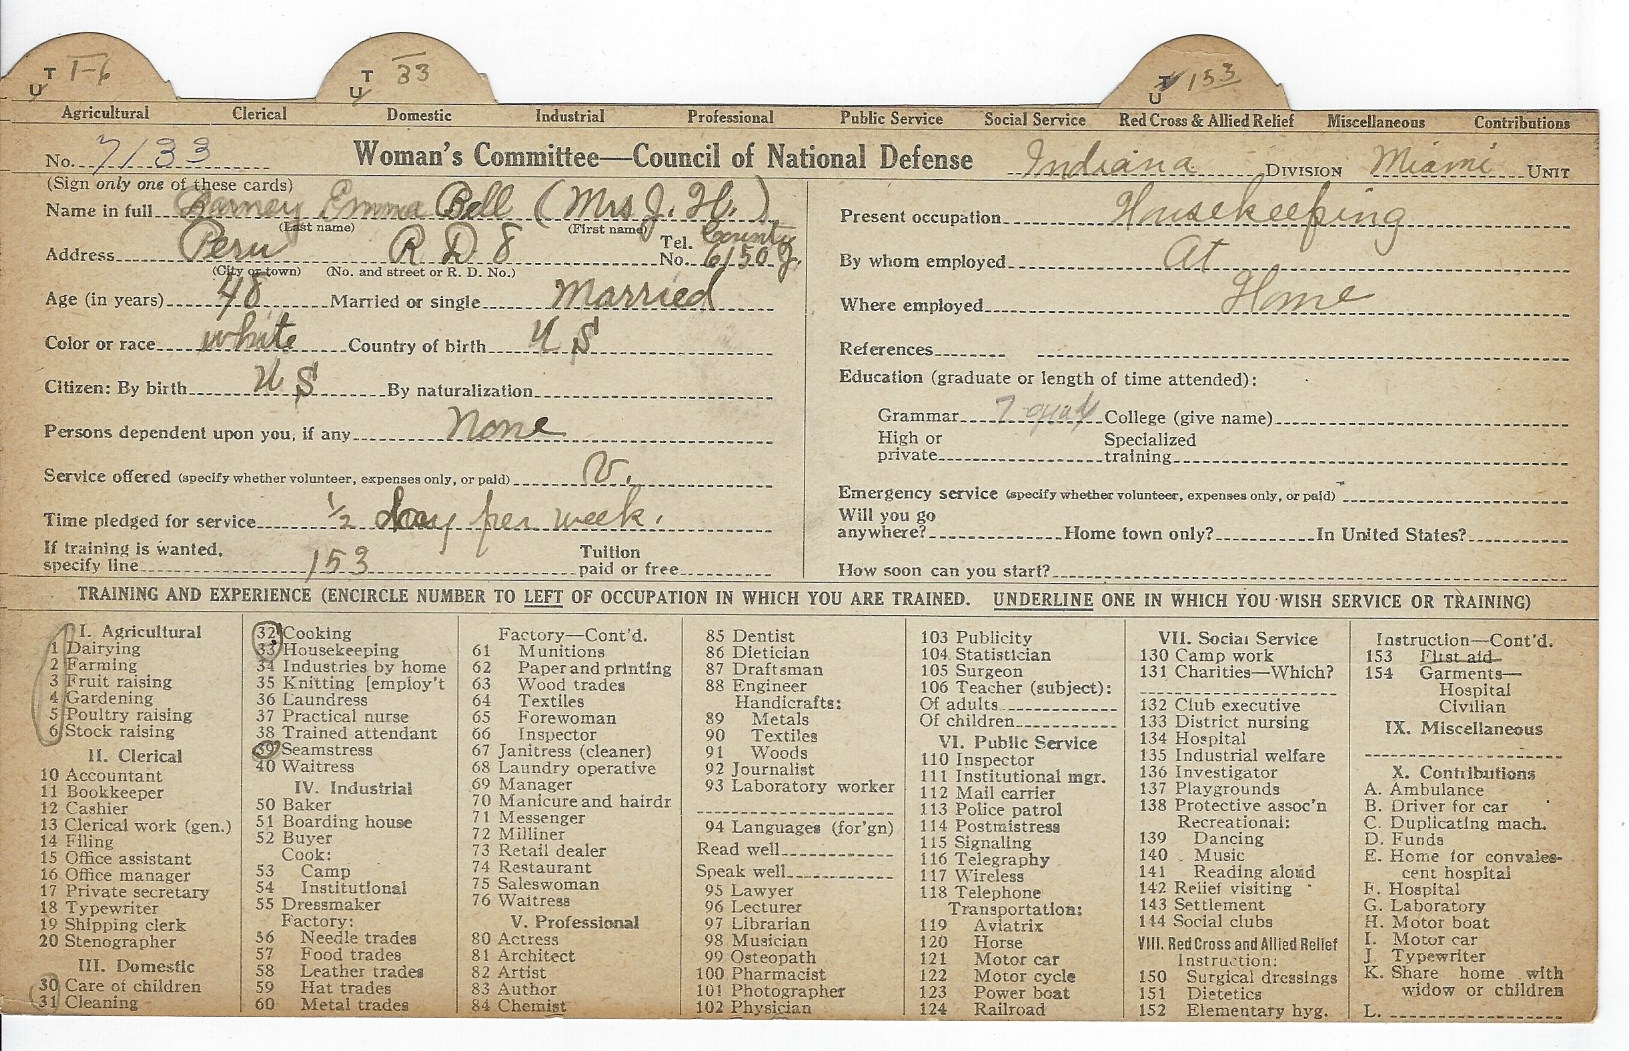 T U 1-6 T U 33 T U 153
Agricultural Clerical Domestic Industrial Professional Public Service Social Service Red Cross & Allied Relief Miscellaneous Contributions
No. 7133 Woman's Committee—Council of National Defense Indiana DIVISION Miami UNIT
(Sign only one of these cards)
Name in full Barney Emma Bell (Mrs J. H.)
(Last name) (First name)
Address Peru R D 8 Tel. No. County 6150 J.
(City or town) (No. and street or R. D. No.)
Age (in years) 48 Married or single Married
Color or race white Country of birth U S
Citizen: By birth U S By naturalization
Persons dependent upon you, if any None
Service offered (specify whether volunteer, expenses only, or paid) V.
Time pledged for service 1/2 day per week.
If training is wanted, specify line 153 Tuition paid or free
Present occupation Housekeeping
By whom employed At
Where employed Home
References
Education (graduate or length of time attended):
Grammar 7 College (give name)
High or private Specialized training
Emergency service (specify whether volunteer, expenses only, or paid)
Will you go anywhere? Home town only? In United States?
How soon can you start?
TRAINING AND EXPERIENCE (ENCIRCLE NUMBER TO LEFT OF OCCUPATION IN WHICH YOU ARE TRAINED. UNDERLINE ONE IN WHICH YOU WISH SERVICE OR TRAINING)
I. Agricultural
1 Dairying
2 Farming
3 Fruit raising
4 Gardening
5 Poultry raising
6 Stock raising
II. Clerical
10 Accountant
11 Bookkeeper
12 Cashier
13 Clerical work (gen.)
14 Filing
15 Office assistant
16 Office manager
17 Private secretary
18 Typewriter
19 Shipping clerk
20 Stenographer
III. Domestic
30 Care of children
31 Cleaning
32 Cooking
33 Housekeeping
34 Industries by home
35 Knitting [employ't
36 Laundress
37 Practical nurse
38 Trained attendant
39 Seamstress
40 Waitress
IV. Industrial
50 Baker
51 Boarding house
52 Buyer
Cook:
53 Camp
54 Institutional
55 Dressmaker
Factory:
56 Needle trades
57 Food trades
58 Leather trades
59 Hat trades
60 Metal trades
Factory—Cont'd.
61 Munitions
62 Paper and printing
63 Wood trades
64 Textiles
65 Forewoman
66 Inspector
67 Janitress (cleaner)
68 Laundry operative
69 Manager
70 Manicure and hairdr
71 Messenger
72 Milliner
73 Retail dealer
74 Restaurant
75 Saleswoman
76 Waitress
V. Professional
80 Actress
81 Architect
82 Artist
83 Author
84 Chemist
85 Dentist
86 Dietician
87 Draftsman
88 Engineer
Handicrafts:
89 Metals
90 Textiles
91 Woods
92 Journalist
93 Laboratory worker
94 Languages (for'gn)
Read well
Speak well
95 Lawyer
96 Lecturer
97 Librarian
98 Musician
99 Osteopath
100 Pharmacist
101 Photographer
102 Physician
103 Publicity
104 Statistician
105 Surgeon
106 Teacher (subject):
Of adults
Of children
VI. Public Service
110 Inspector
111 Institutional mgr.
112 Mail carrier
113 Police patrol
114 Postmistress
115 Signaling
116 Telegraphy
117 Wireless
118 Telephone
Transportation:
119 Aviatrix
120 Horse
121 Motor car
122 Motor cycle
123 Power boat
124 Railroad
VII. Social Service
130 Camp work
131 Charities—Which?
132 Club executive
133 District nursing
134 Hospital
135 Industrial welfare
136 Investigator
137 Playgrounds
138 Protective assoc'n
Recreational:
139 Dancing
140 Music
141 Reading aloud
142 Relief visiting
143 Settlement
144 Social clubs
VIII. Red Cross and Allied Relief
Instruction:
150 Surgical dressings
151 Dietetics
152 Elementary hyg.
Instruction—Cont'd.
153 First aid
154 Garments—
Hospital
Civilian
IX. Miscellaneous
X. Contributions
A. Ambulance
B. Driver for car
C. Duplicating mach.
D. Funds
E. Home for convales-
cent hospital
F. Hospital
G. Laboratory
H. Motor boat
I. Motor car
J. Typewriter
K. Share home with
widow or children
L.